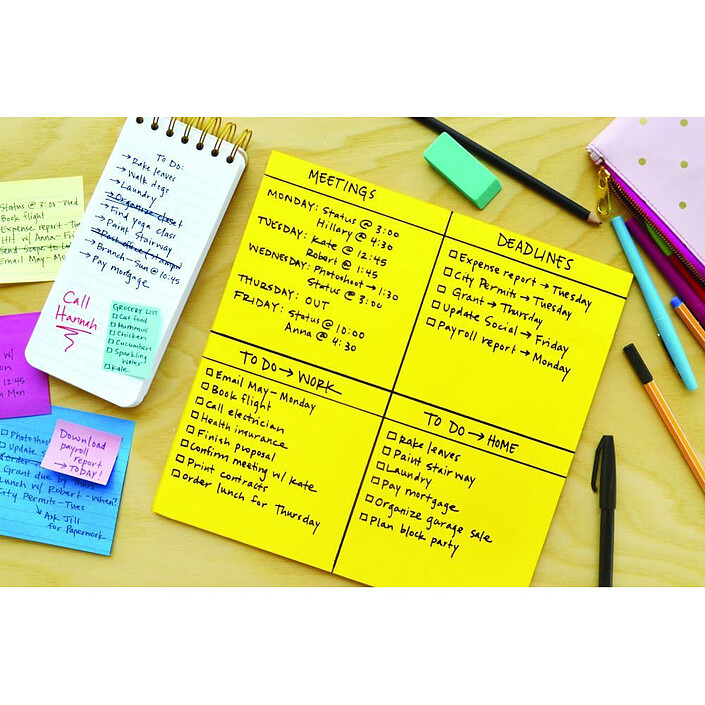 Status @ 3:00 - Wed
Book flight
Expense report - Tu
w/ Anna - Fri
Email May - Mon
To Do:
→ Rake leaves
→ Walk dogs
→ Laundry
→ Organize closet
→ Find yoga class
→ Paint Stairway
→ Post office (stamps)
→ Brunch - Sun @ 10:45
→ Pay mortgage
Call
Hannah
GROCERY LIST
☐ Cat food
☐ Hummus
☐ Chicken
☐ Cucumbers
☐ Sparkling
Water
☐ Kale
w/
12:45
Mon
☐ Photosho
☐ Update S
☐ Order
Grant due by
Lunch w/ Robert - When?
City Permits - Tues
↳ Ask Jill
for Paperwork
Download
payroll
report
→ TODAY!
MEETINGS
MONDAY: Status @ 3:00
Hillary @ 4:30
TUESDAY: Kate @ 12:45
Robert @ 1:45
WEDNESDAY: Photoshoot → 1:30
Status @ 3:00
THURSDAY: OUT
FRIDAY: Status @ 10:00
Anna @ 4:30
DEADLINES
☐ Expense report → Tuesday
☐ City Permits → Tuesday
☐ Grant → Thursday
☐ Update Social → Friday
☐ Payroll report → Monday
TO DO → WORK
☐ Email May - Monday
☐ Book flight
☐ Call electrician
☐ Health insurance
☐ Finish proposal
☐ Confirm meeting w/ Kate
☐ Print contracts
☐ Order lunch for Thursday
TO DO → HOME
☐ Rake leaves
☐ Paint stairway
☐ Laundry
☐ Pay mortgage
☐ Organize garage sale
☐ Plan block party